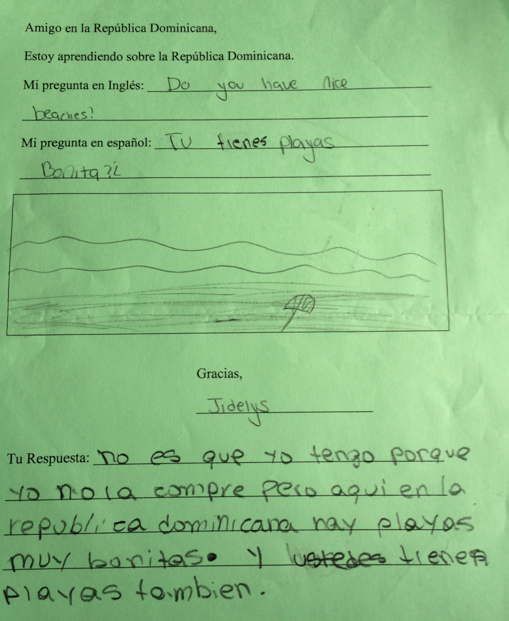 Amigo en la República Dominicana,
Estoy aprendiendo sobre la República Dominicana.
Mi pregunta en Inglés: Do you have nice
beaches?
Mi pregunta en español: TU tienes playas
Bonita?¿
Gracias,
Jidelys
Tu Respuesta: no es que yo tengo porque
yo no la compre pero aqui en la
republica dominicana hay playas
muy bonitas. y ustedes tienen
playas tambien.